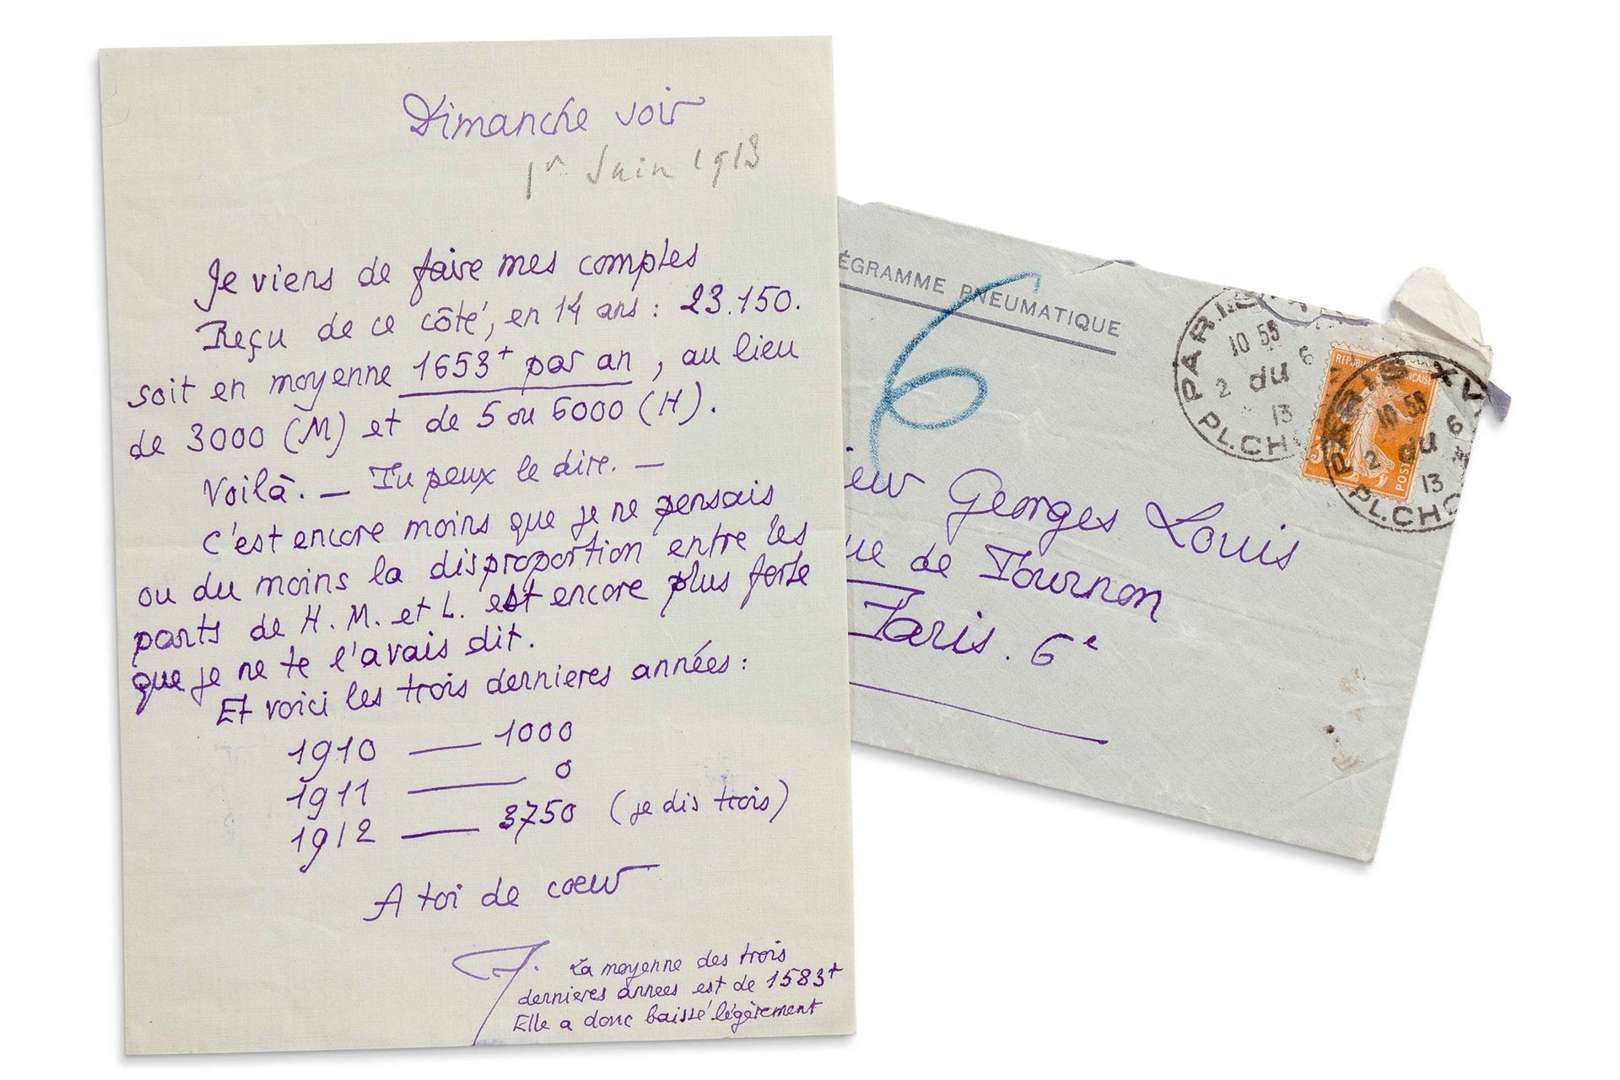 Dimanche soir
1er Juin 1913
Je viens de faire mes comptes
Reçu de ce côté, en 14 ans : 23.150.
soit en moyenne 1653+ par an, au lieu
de 3000 (M) et de 5 ou 6000 (H).
Voilà. — Tu peux le dire. —
C'est encore moins que je ne pensais
ou du moins la disproportion entre les
parts de H. M. et L. est encore plus forte
que je ne te l'avais dit.
Et voici les trois dernieres années :
1910 — 1000
1911 — 0
1912 — 3750 (je dis trois)
A toi de coeur
La moyenne des trois
dernieres années est de 1583+
Elle a donc baissé légèrement
ÉGRAMME PNEUMATIQUE
6
ieur Georges Louis
ue de Tournon
Paris. 6e
PARIS
10 55
2 du 6
13
PL.CH
PARIS XV
10 55
2 du 6
13
PL.CHO
POSTES